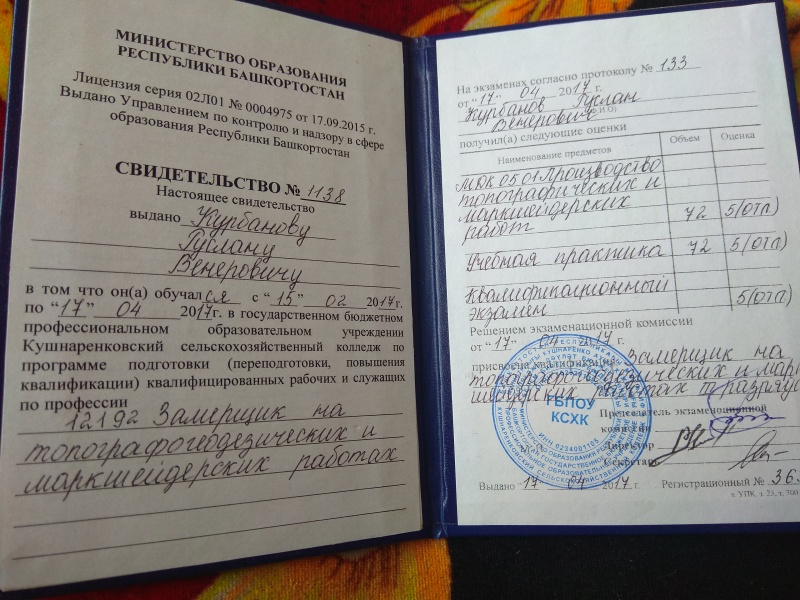 МИНИСТЕРСТВО ОБРАЗОВАНИЯ
РЕСПУБЛИКИ БАШКОРТОСТАН
Лицензия серия 02Л01 № 0004975 от 17.09.2015 г.
Выдано Управлением по контролю и надзору в сфере
образования Республики Башкортостан
СВИДЕТЕЛЬСТВО № 1138
Настоящее свидетельство
выдано Курбанову
Руслану
Венеровичу
в том что он(а) обучался с “15” 02 2017г.
по “17” 04 2017г. в государственном бюджетном
профессиональном образовательном учреждении
Кушнаренковский сельскохозяйственный колледж по
программе подготовки (переподготовки, повышения
квалификации) квалифицированных рабочих и служащих
по профессии
12192 Замерщик на
топографогеодезических и
маркшейдерских работах
На экзаменах согласно протоколу № 133
от “17” 04 2017 г.
Курбанов Руслан
Венерович
получил(а) следующие оценки
Наименование предметов Объем Оценка
МДК 05 01 Производство
топографических и
маркшейдерских
работ 72 5(отл)
Учебная практика 72 5(отл)
Квалификационный
экзамен 5(отл)
Решением экзаменационной комиссии
от “17” 04 2017 г.
присвоена квалификация Замерщик на
топографогеодезических и марк
шейдерских работах
ГБПОУ
КСХК
ИНН 0234001105
Председатель экзаменационной
комиссии
Директор
Секретарь
Выдано “17” 04 2017 г. Регистрационный № 363
т. УПК. з. 23, т. 300